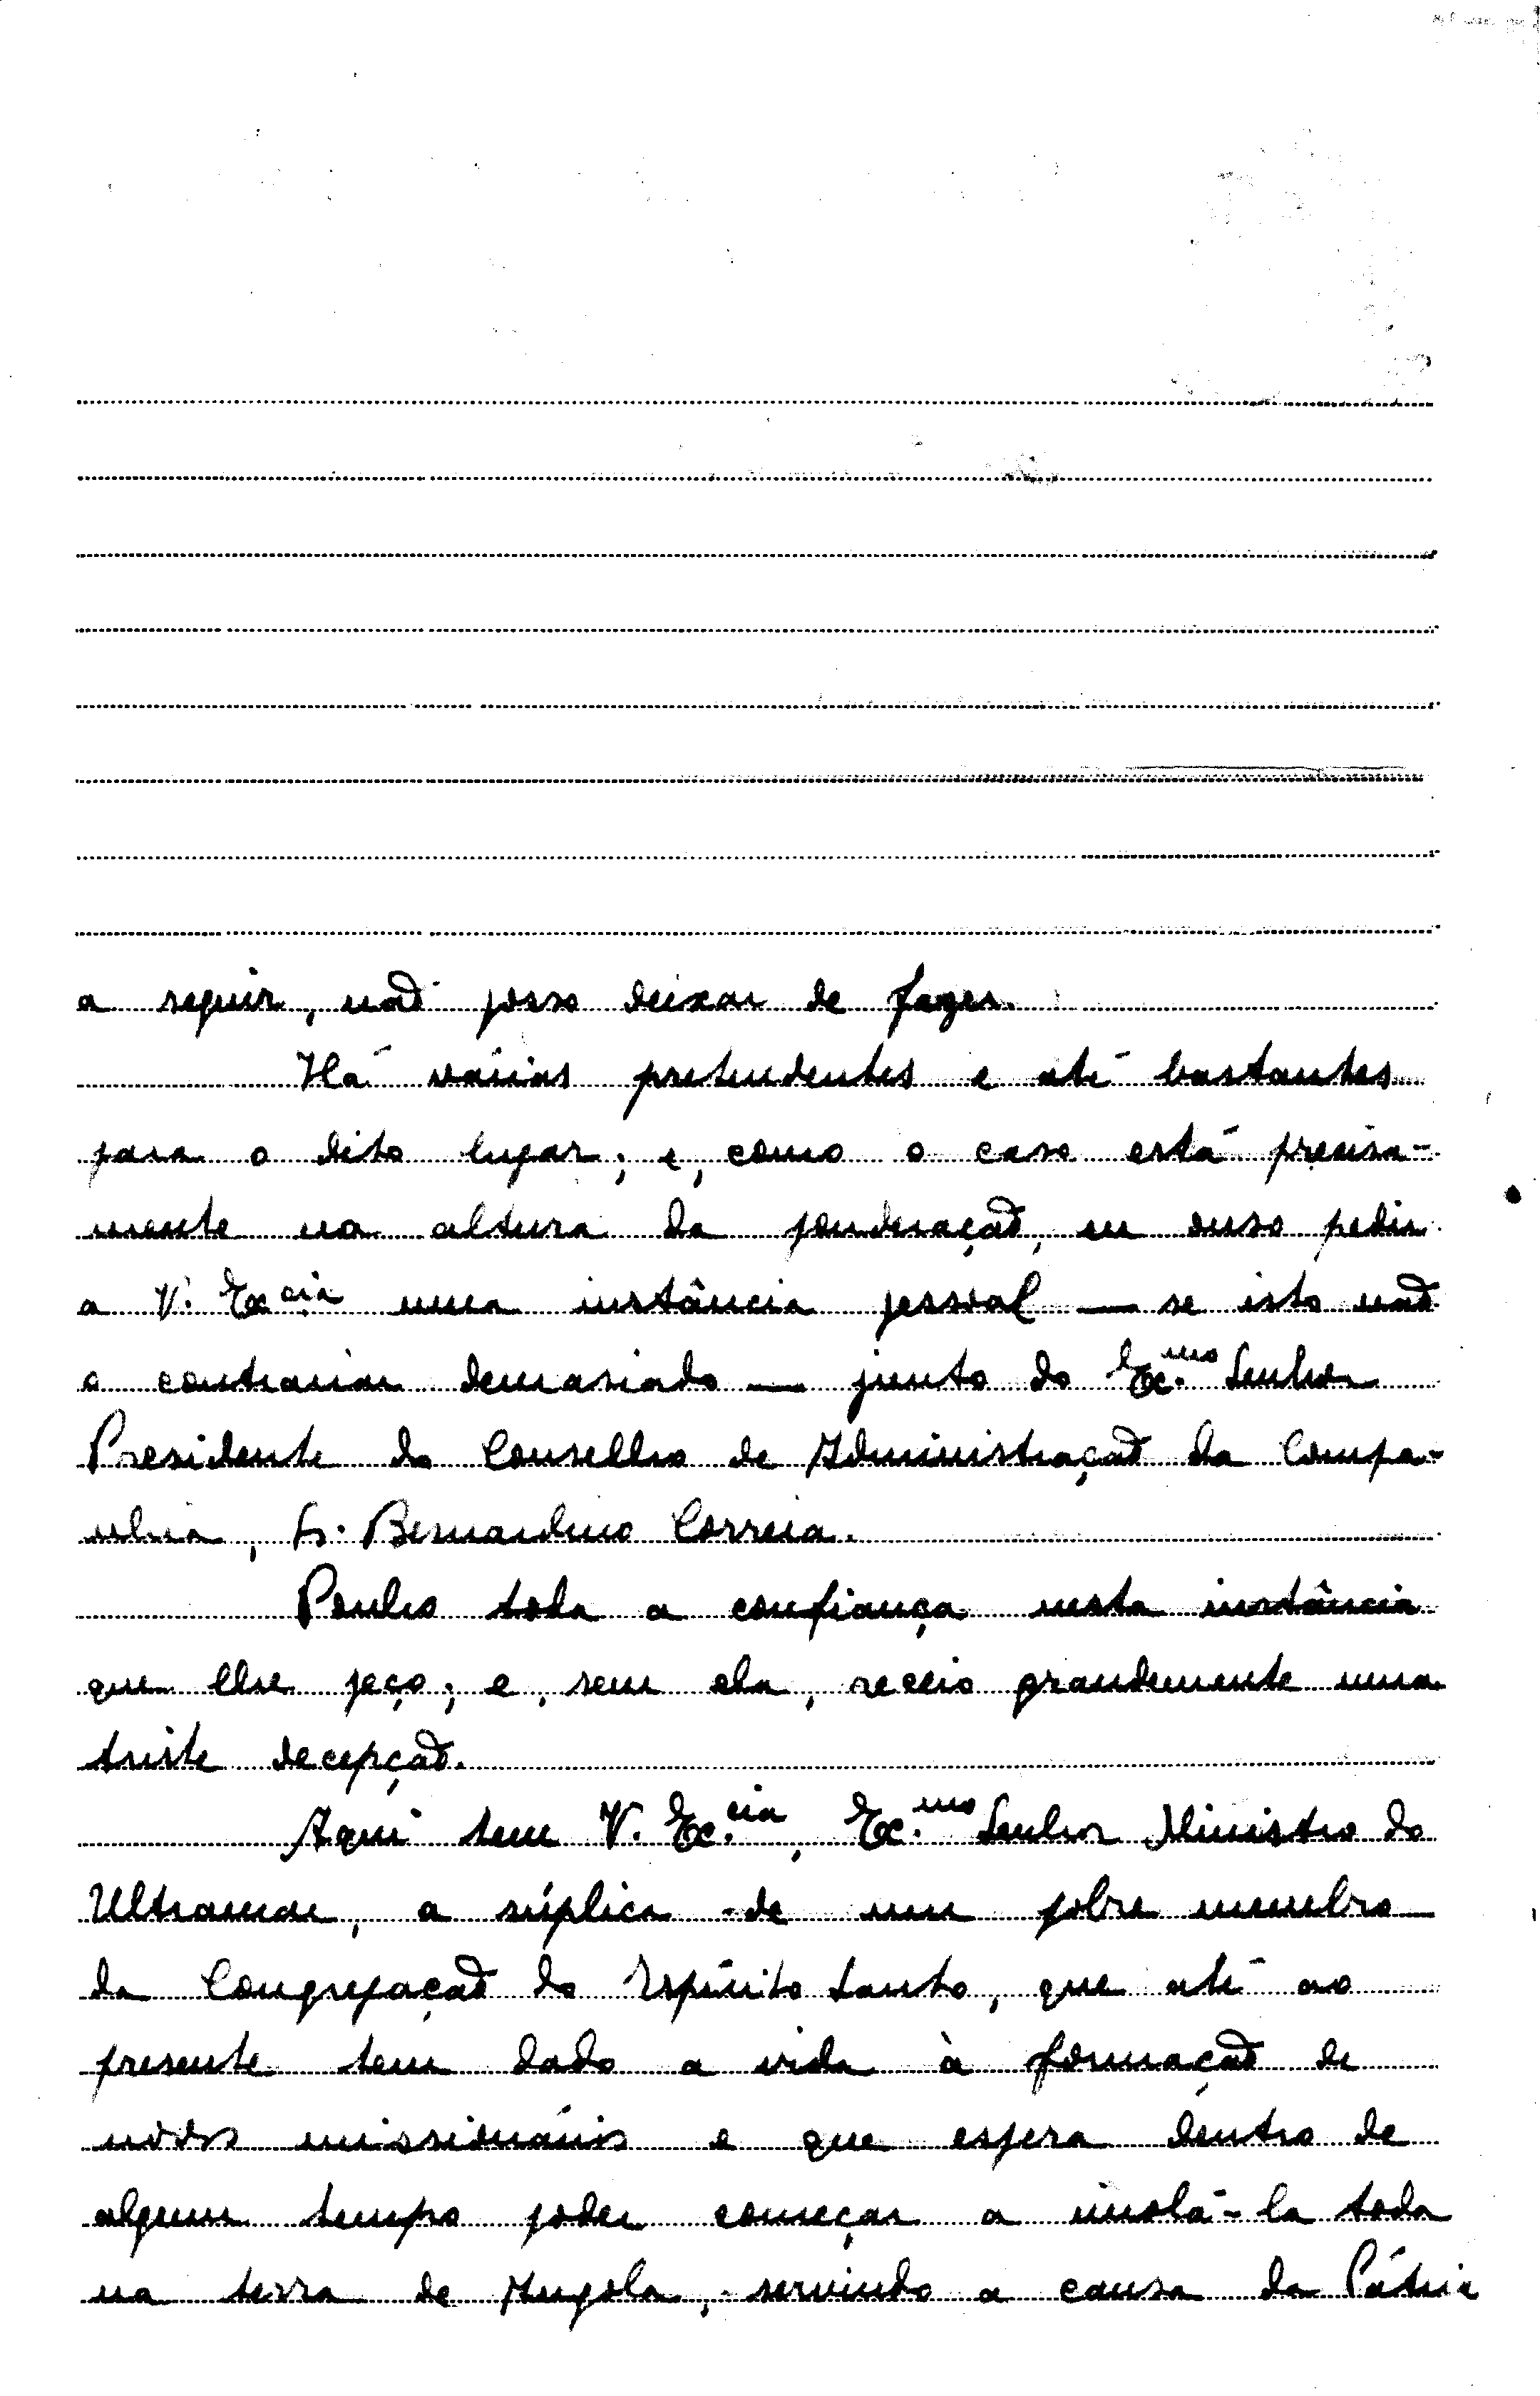 a seguir, não posso deixar de fazer.
Há vários pretendentes e até bastantes
para o dito lugar; e, como o caso está precisa-
mente na altura da ponderação, eu ouso pedir
a V. Ex.cia uma instância pessoal — se isto não
o contrariar demasiado — junto do Ex.mo Senhor
Presidente do Conselho de Administração da Compa-
nhia, Sr. Bernardino Correia.
Ponho toda a confiança nesta instância
que lhe peço; e, sem ela, receio grandemente uma
triste decepção.
Aqui tem V. Ex.cia, Ex.mo Senhor Ministro do
Ultramar, a súplica de um pobre membro
da Congregação do Espírito Santo, que até ao
presente tem dado a vida à formação de
novos missionários e que espera dentro de
algum tempo poder começar a imolá-la toda
na terra de Angola, servindo a causa da Pátria